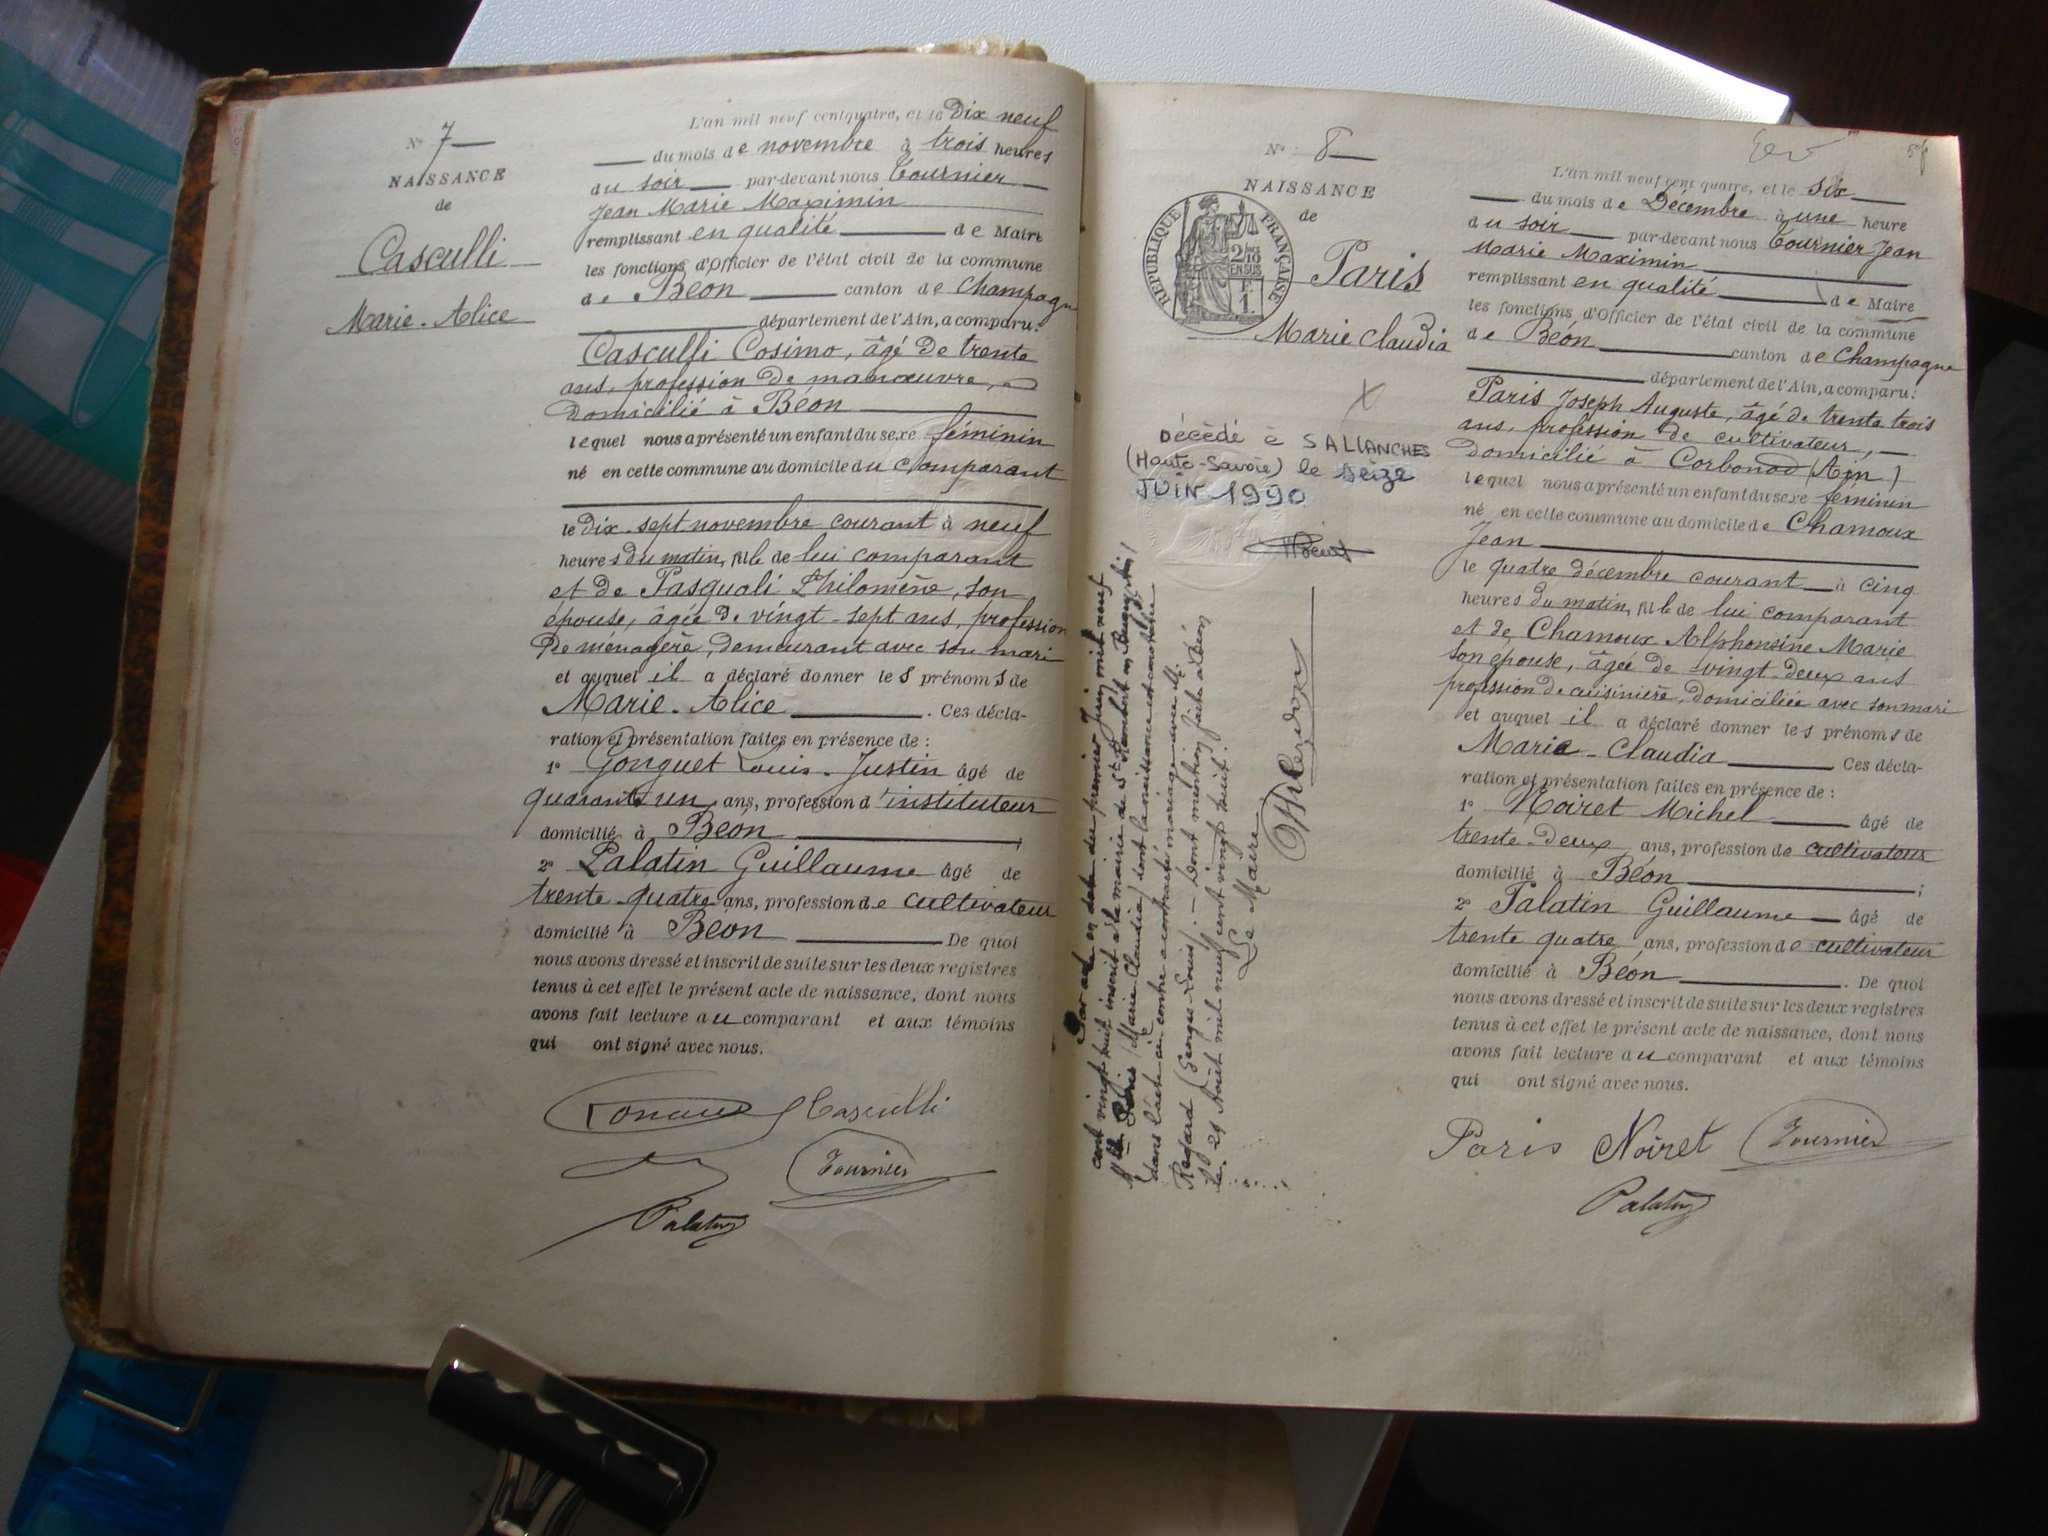 N° 7
NAISSANCE
de
Casculli
Marie-Alice
L'an mil neuf cent quatre, et le Dix neuf
du mois de novembre à trois heures
du soir par-devant nous Tournier
Jean Marie Maximin
remplissant en qualité de Maire
les fonctions d'Officier de l'état civil de la commune
de Béon canton de Champagne
département de l'Ain, a comparu:
Casculli Cosimo, âgé de trente
ans, profession de manœuvre,
domicilié à Béon
lequel nous a présenté un enfant du sexe féminin
né en cette commune au domicile du comparant
le dix-sept novembre courant à neuf
heures du matin, fille de lui comparant
et de Pasquali Philomène, son
épouse, âgée de vingt-sept ans, profession
de ménagère, demeurant avec son mari
et auquel il a déclaré donner les prénoms de
Marie-Alice. Ces décla-
ration et présentation faites en présence de :
1° Gonguet Louis-Justin âgé de
quarante un ans, profession d'instituteur
domicilié à Béon ;
2° Palatin Guillaume âgé de
trente-quatre ans, profession de cultivateur
domicilié à Béon De quoi
nous avons dressé et inscrit de suite sur les deux registres
tenus à cet effet le présent acte de naissance, dont nous
avons fait lecture au comparant et aux témoins
qui ont signé avec nous.
Casculli
Tournier
Palatin
N° 8
NAISSANCE
de
RÉPUBLIQUE FRANÇAISE
2/10
EN SUS
1 F.
Paris
Marie Claudia
X
Décédé à SALLANCHES
(Haute-Savoie) le seize
JUIN 1990
Par acte en date du premier Juin mil neuf
cent vingt huit inscrit à la mairie de St Rambert en Bugey (Ain)
Mlle Paris (Marie Claudia) dont la naissance est constatée
dans l'acte ci-contre a contracté mariage avec M.
Regard (Georges-Louis). - Dont mention faite à Béon
le 29 Août mil neuf cent vingt huit.
Le Maire
58
L'an mil neuf cent quatre, et le six
du mois de Décembre à une heure
du soir par-devant nous Tournier Jean
Marie Maximin
remplissant en qualité de Maire
les fonctions d'Officier de l'état civil de la commune
de Béon canton de Champagne
département de l'Ain, a comparu:
Paris Joseph Auguste, âgé de trente trois
ans, profession de cultivateur,
domicilié à Corbonod (Ain)
lequel nous a présenté un enfant du sexe féminin
né en cette commune au domicile de Chamoux
Jean
le quatre décembre courant à cinq
heures du matin, fille de lui comparant
et de Chamoux Alphonsine Marie
son épouse, âgée de vingt-deux ans
profession de cuisinière, domiciliée avec son mari
et auquel il a déclaré donner les prénoms de
Marie-Claudia Ces décla-
ration et présentation faites en présence de :
1° Noiret Michel âgé de
trente-deux ans, profession de cultivateur
domicilié à Béon ;
2° Palatin Guillaume âgé de
trente quatre ans, profession de cultivateur
domicilié à Béon . De quoi
nous avons dressé et inscrit de suite sur les deux registres
tenus à cet effet le présent acte de naissance, dont nous
avons fait lecture au comparant et aux témoins
qui ont signé avec nous.
Paris Noiret Tournier
Palatin